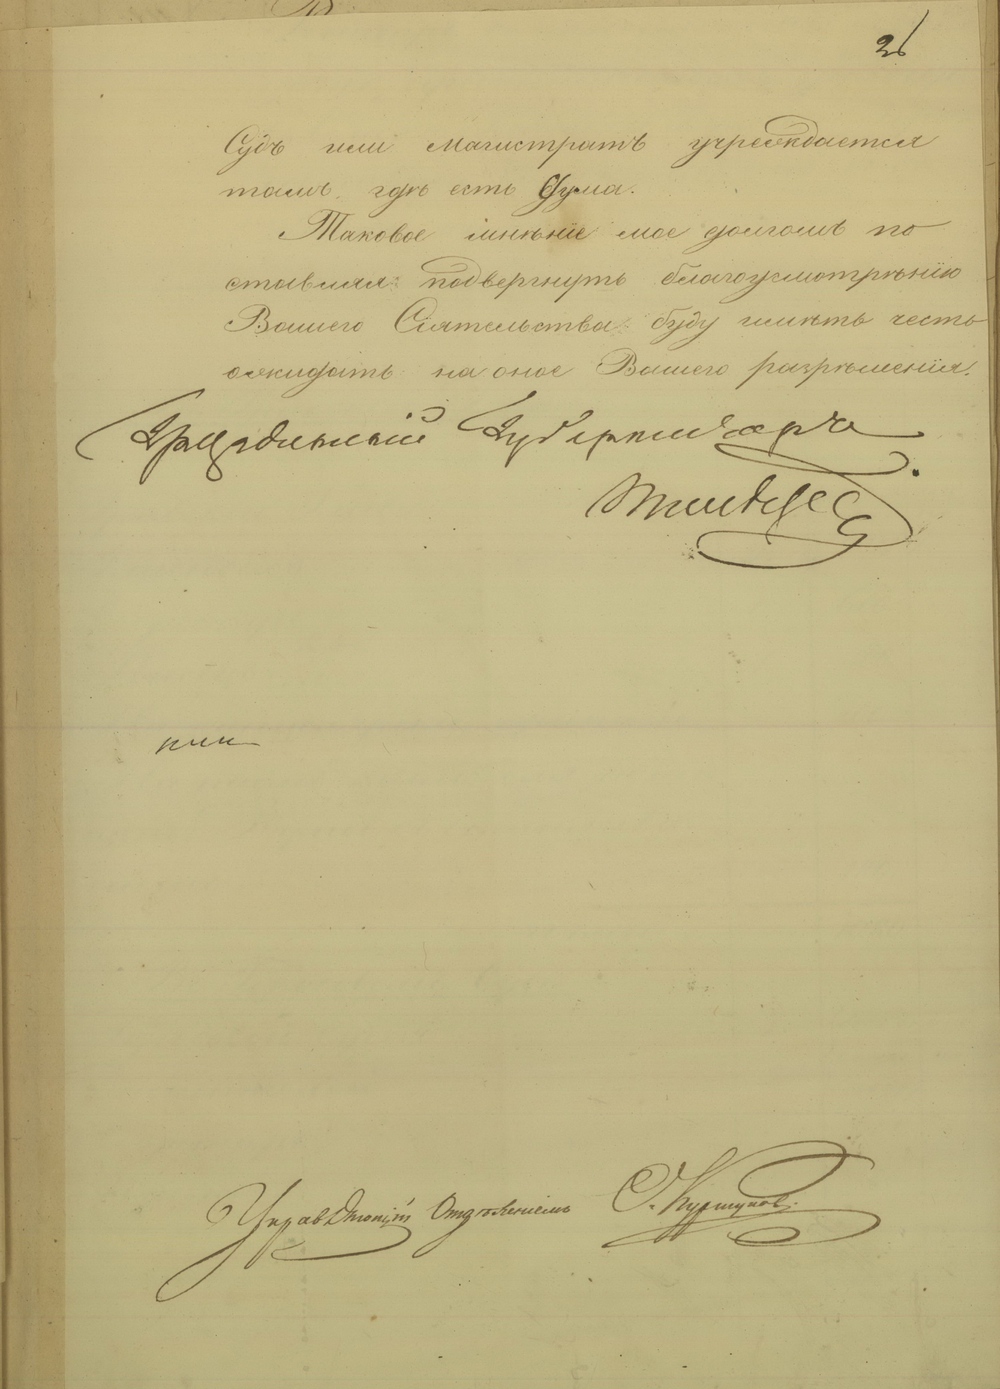 26
Судъ или Магистратъ учреждается
тамъ, гдѣ есть Дума.
Таковое мнѣніе мое долгомъ по
ставляя подвергнуть благоусмотрѣнію
Вашего Сіятельства буду имѣть честь
ожидать на оное Вашего разрѣшенія.
Гражданскій Губернаторъ
Управляющій Отдѣленіемъ